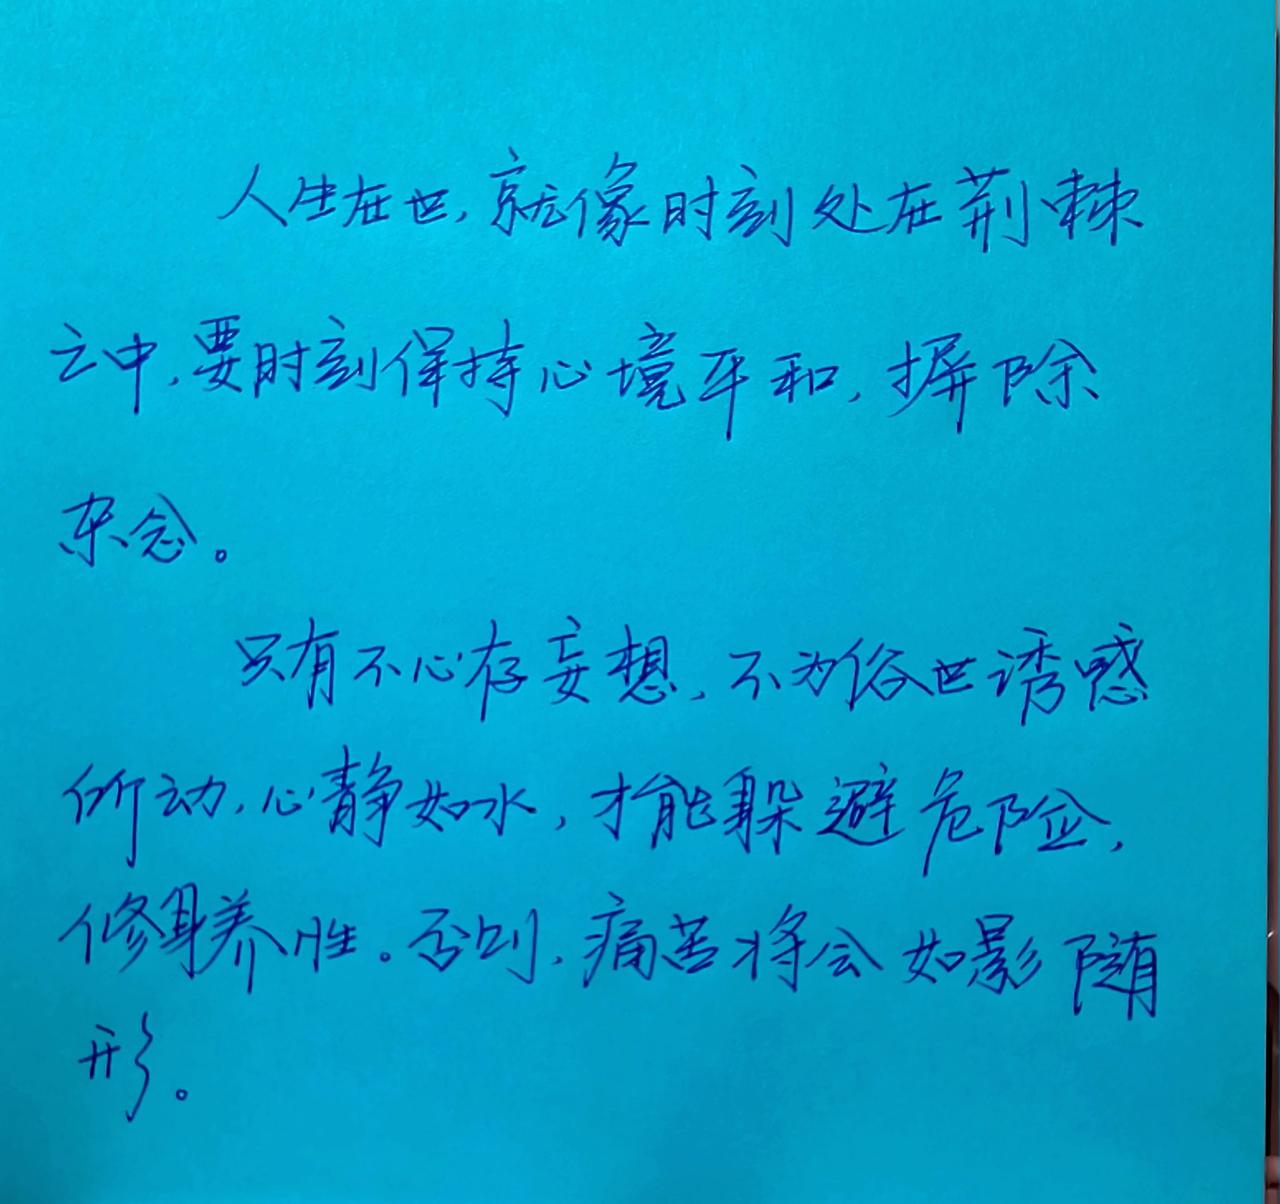 人生在世,就像时刻处在荆棘
之中,要时刻保持心境平和,摒除
杂念。
只有不心存妄想,不为俗世诱惑
所动,心静如水,才能躲避危险,
修身养性。否则,痛苦将会如影随
形。